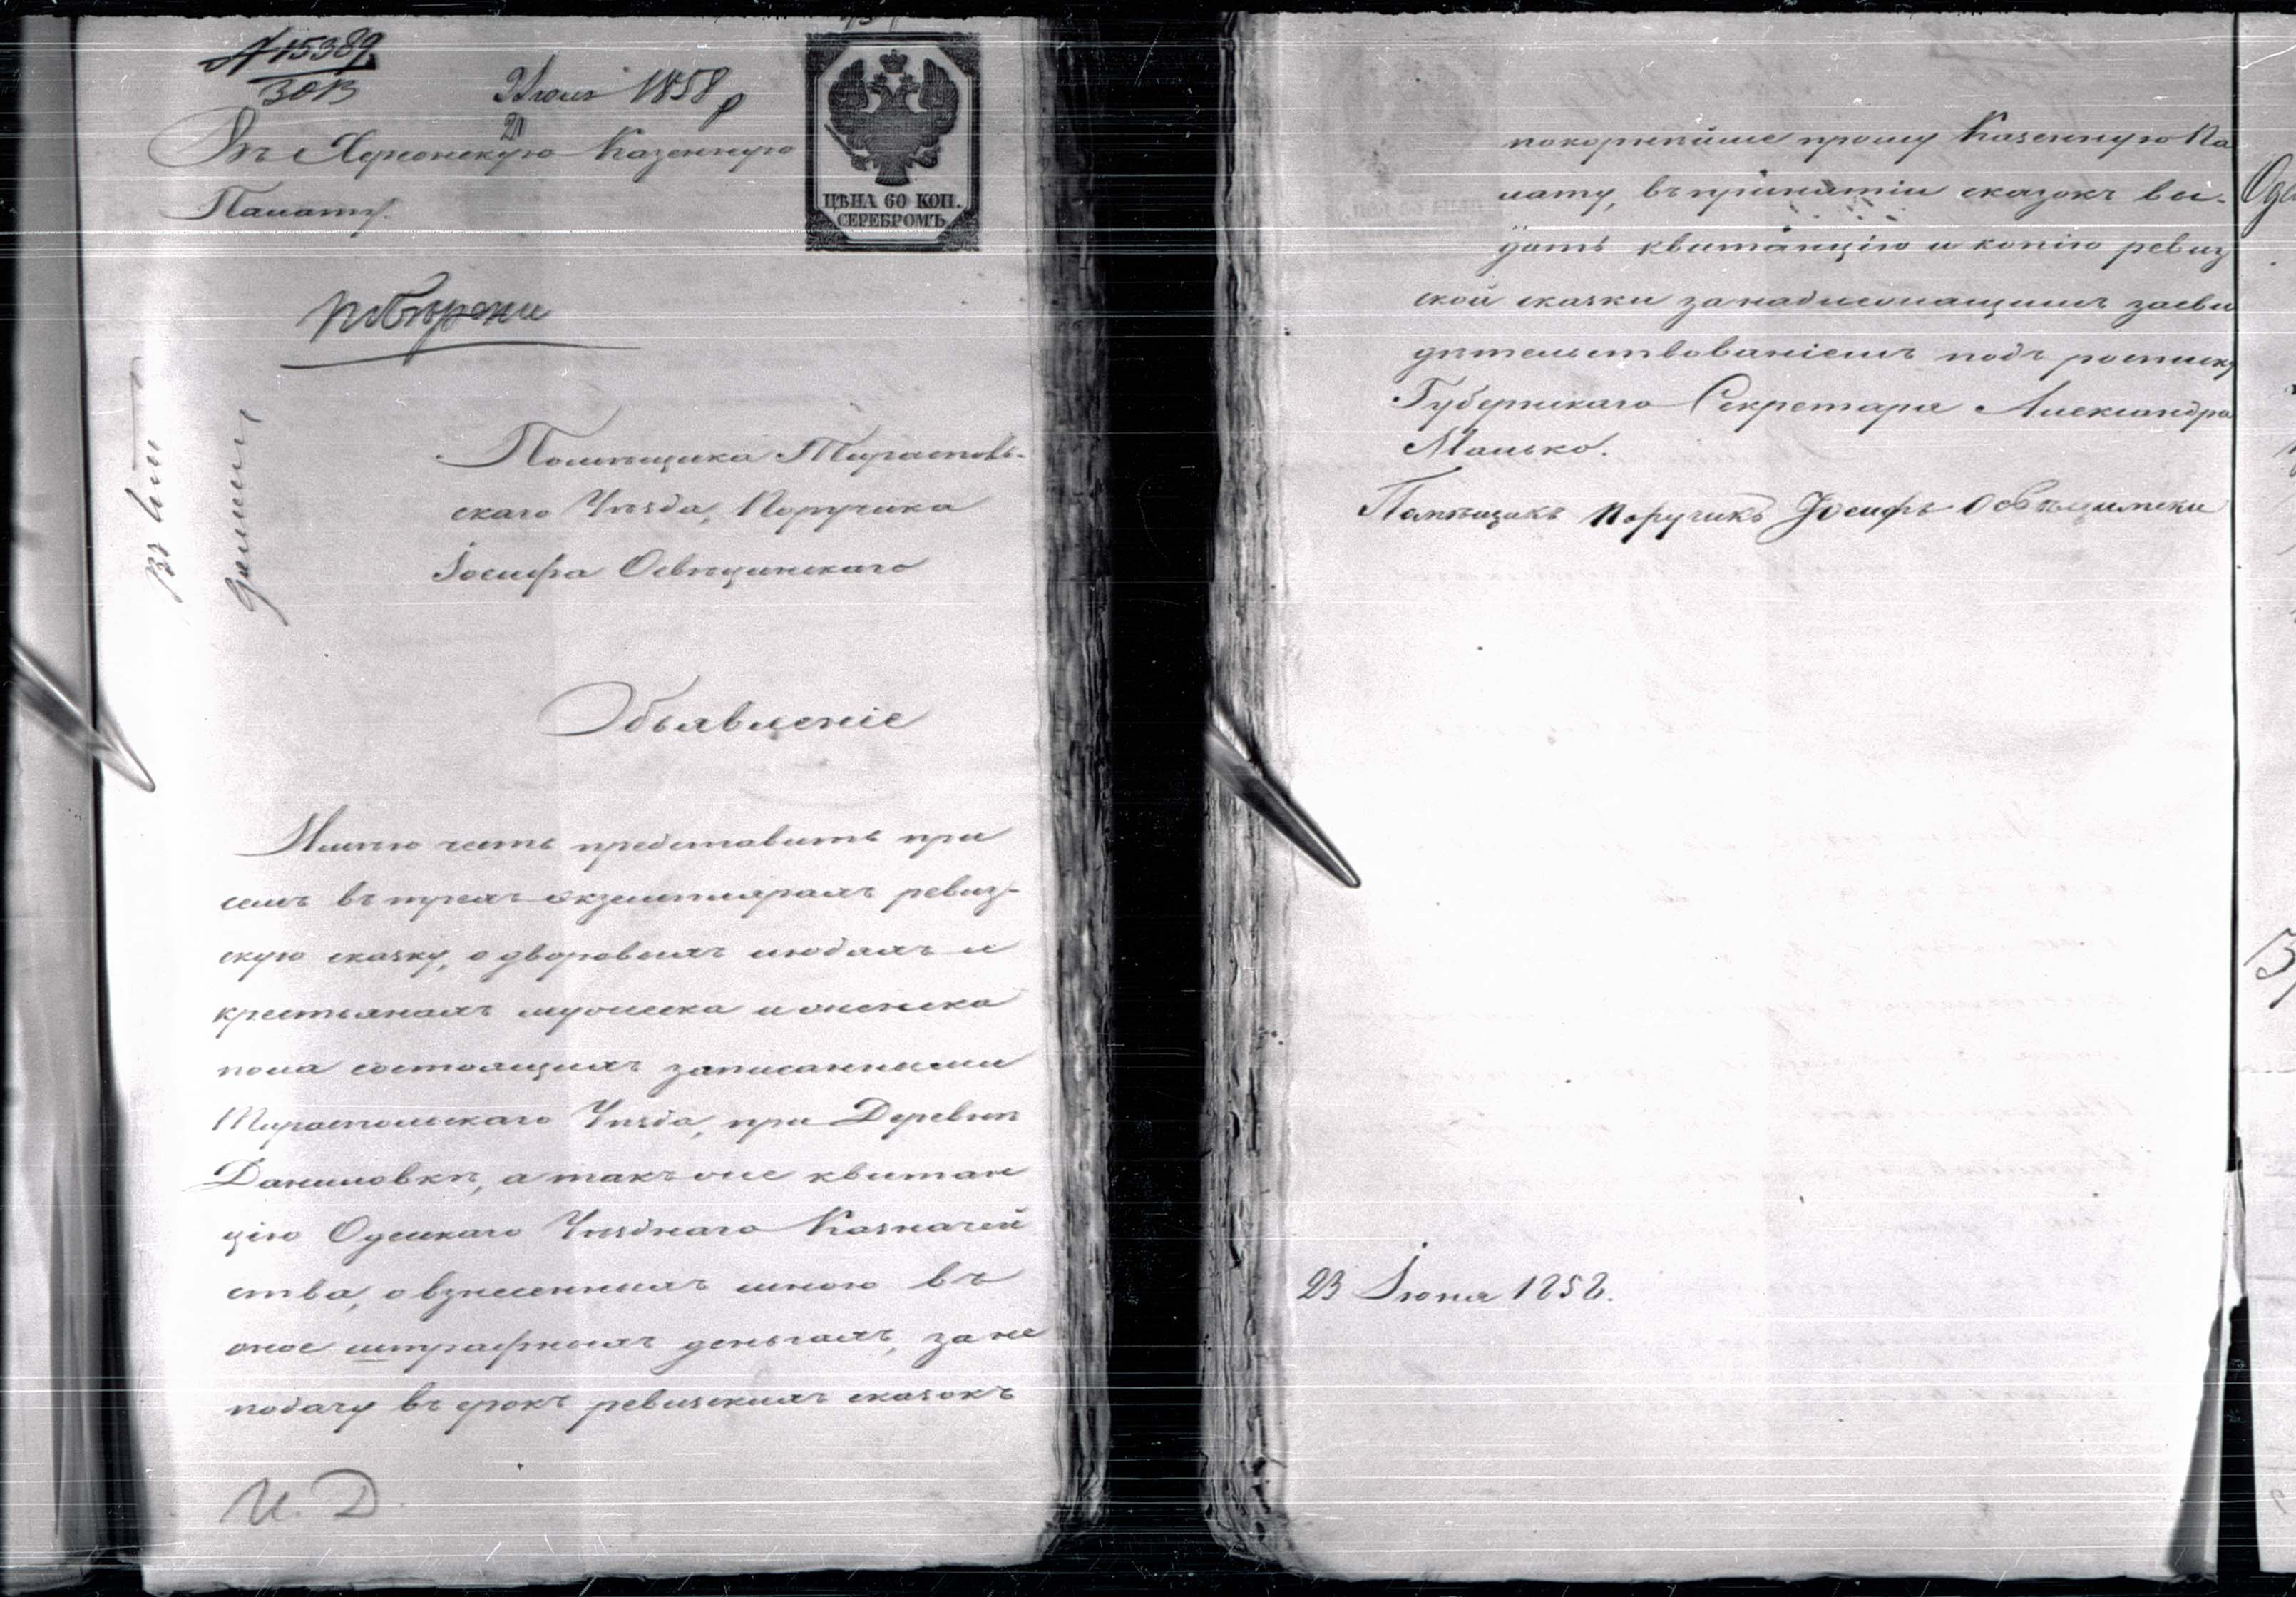 № 15389
Іюля 1858
Въ Херсонскую Казенную
Палату.
ЦѢНА 60 КОП.
СЕРЕБРОМЪ
Помѣщика Тираспол-
скаго Уѣзда, Поручика
Іосифа Освѣцинскаго
Объявленіе
Имѣю честь представить при
семъ въ трехъ экземплярахъ ревиз-
скую сказку, о дворовыхъ людяхъ и
крестьянахъ мужеска и женска
пола состоящихъ записанными
Тираспольскаго Уѣзда, при Деревнѣ
Даниловкѣ, а такъ же квитан
цію Одескаго Уѣзднаго Казначей
ства, о взнесенныхъ мною въ
оное штрафныхъ деньгахъ, за не
подачу въ срокъ ревизскихъ сказокъ
И. Д.
покорнѣйше прошу Казенную Па
лату, въ принятіи сказокъ вы-
дать квитанцію и копію ревиз
ской сказки за надлежащимъ засви
дѣтельствованіемъ подъ росписку
Губернскаго Секретаря Александра
Малько.
Помѣщикъ Поручикъ Іосифъ Освѣцимски
23 Іюня 1858.